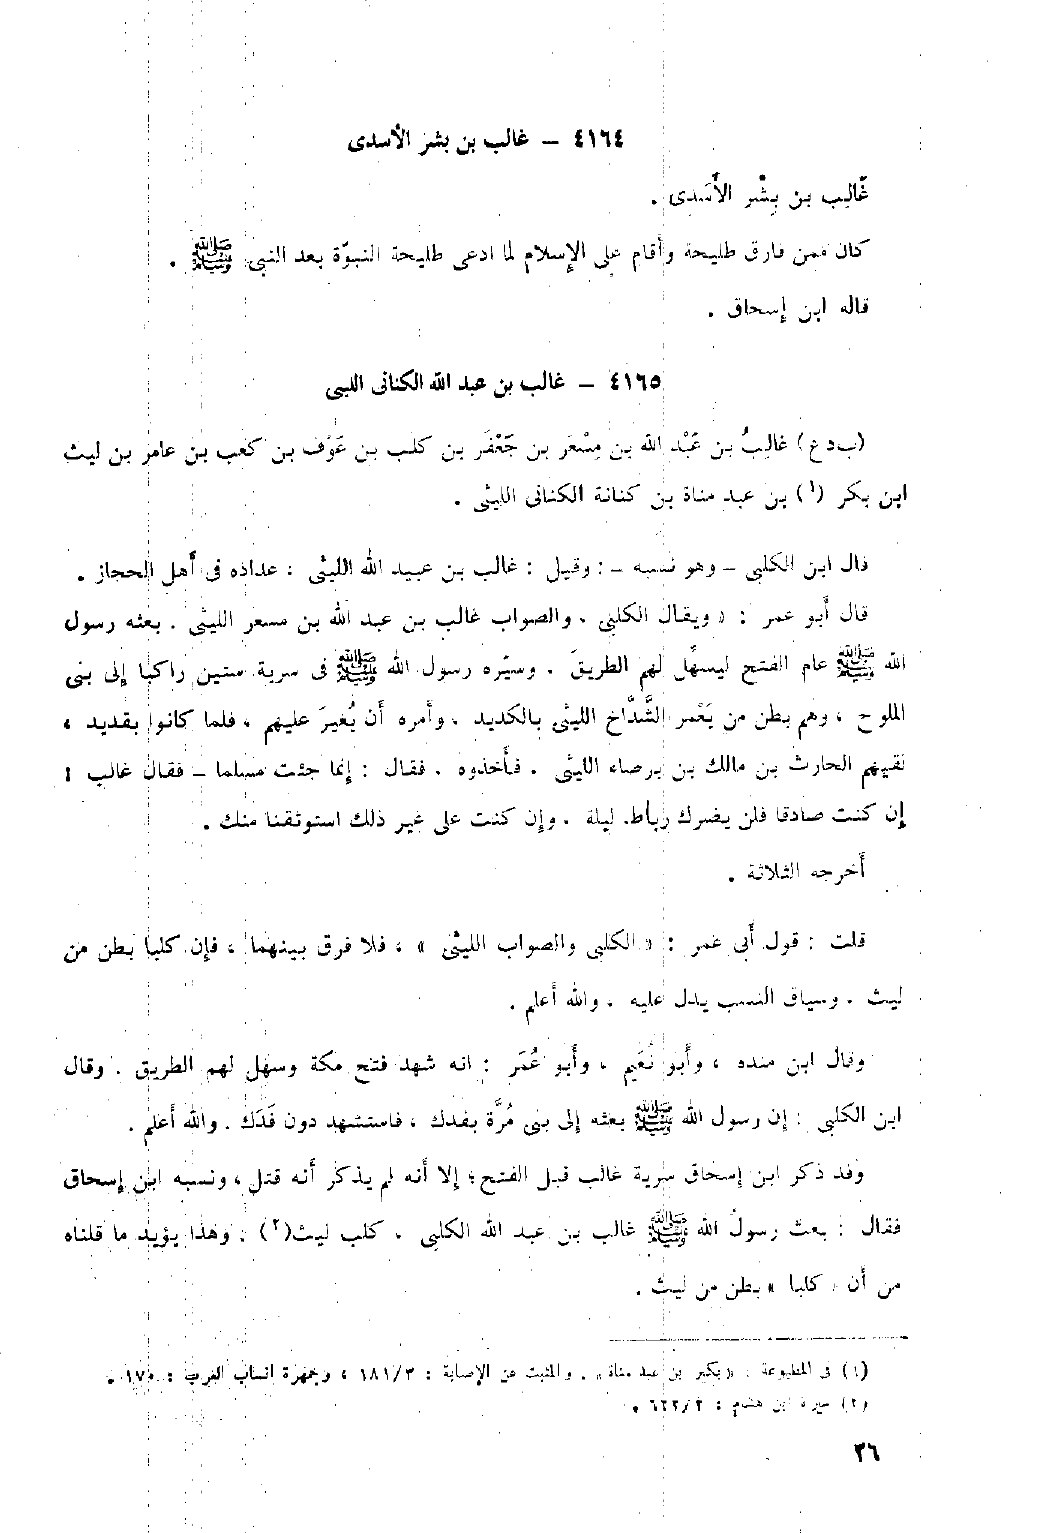 ٤١٦٤ – غالب بن بشر الأسدى
غَالِب بن بِشْر الأَسَدى .
كان ممن فارق طليحة وأقام على الإسلام لما ادعى طليحة النبوّة بعد النبى ﷺ .
قاله ابن إسحاق .
٤١٦٥ – غالب بن عبد الله الكنانى الليثى
(ب د ع) غالِبُ بن عَبْد الله بن مِسْعَر بن جَعْفَر بن كلب بن عَوْف بن كعب بن عامر بن ليث
ابن بكر (١) بن عبد مناة بن كنانة الكنانى الليثى .
قال ابن الكلبى – وهو نسبه – : وقيل : غالب بن عبيد الله الليثى : عداده فى أهل الحجاز .
قال أبو عمر : « ويقال الكلبى . والصواب غالب بن عبد الله بن مسعر الليثى . بعثه رسول
الله ﷺ عام الفتح ليسهِّل لهم الطريق . وسيّره رسول الله ﷺ فى سرية ستين راكبا إلى بنى
الملوح ، وهم بطن من يَعْمر الشَّدَّاخ الليثى بالكديد ، وأمره أن يُغيرَ عليهم ، فلما كانوا بقديد ،
لقيهم الحارث بن مالك بن برصاء الليثى . فأخذوه . فقال : إنما جئت مسلما – فقال غالب :
إن كنت صادقا فلن يضرك رباط ليلة . وإن كنت على غير ذلك استوثقنا منك .
أخرجه الثلاثة .
قلت : قول أبى عمر : « الكلبى والصواب الليثى » ، فلا فرق بينهما ، فإن كلبا بطن من
ليث . وسياق النسب يدل عليه . والله أعلم .
وقال ابن منده ، وأبو نُعَيم ، وأبو عُمَر : انه شهد فتح مكة وسهل لهم الطريق . وقال
ابن الكلبى : إن رسول الله ﷺ بعثه إلى بنى مُرَّة بفدك ، فاستشهد دون فَدَك . والله أعلم .
وقد ذكر ابن إسحاق سرية غالب قبل الفتح؛ إلا أنه لم يذكر أنه قتل ، ونسبه ابن إسحاق
فقال : بعث رسولُ الله ﷺ غالب بن عبد الله الكلبى . كلب ليث(٢) . وهذا يؤيد ما قلناه
من أن « كلبا » بطن من ليث .
(١) فى المطبوعة : «بكير بن عبد مناة» . والمثبت عن الإصابة : ١٨١/٣ ، وجمهرة انساب العرب : ١٧٠ .
(٢) سيرة ابن هشام : ٦٢٢/٢ .
٣٦